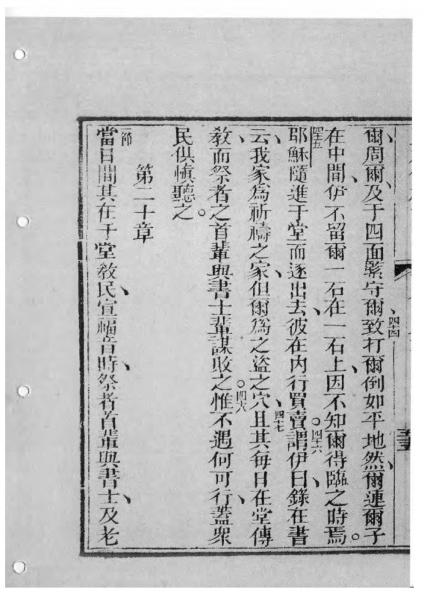 爾周爾及于四面緊守爾致打爾倒如平地然爾連爾子
在中間伊不留爾一石在一石上因不知爾得臨之時焉。
耶穌隨進于堂而逐出去彼在內行買賣。謂伊曰錄在書
云我家為祈禱之家但爾為之盜之穴、且其每日在堂傳
教而祭者之首輩與書士輩謀敗之。惟不遇何可行蓋衆
民俱慎聽之
第二十章
當日間其在于堂教民宣福音時祭者首輩與書士及老
四四
四五
四十六
四七
四八
一節